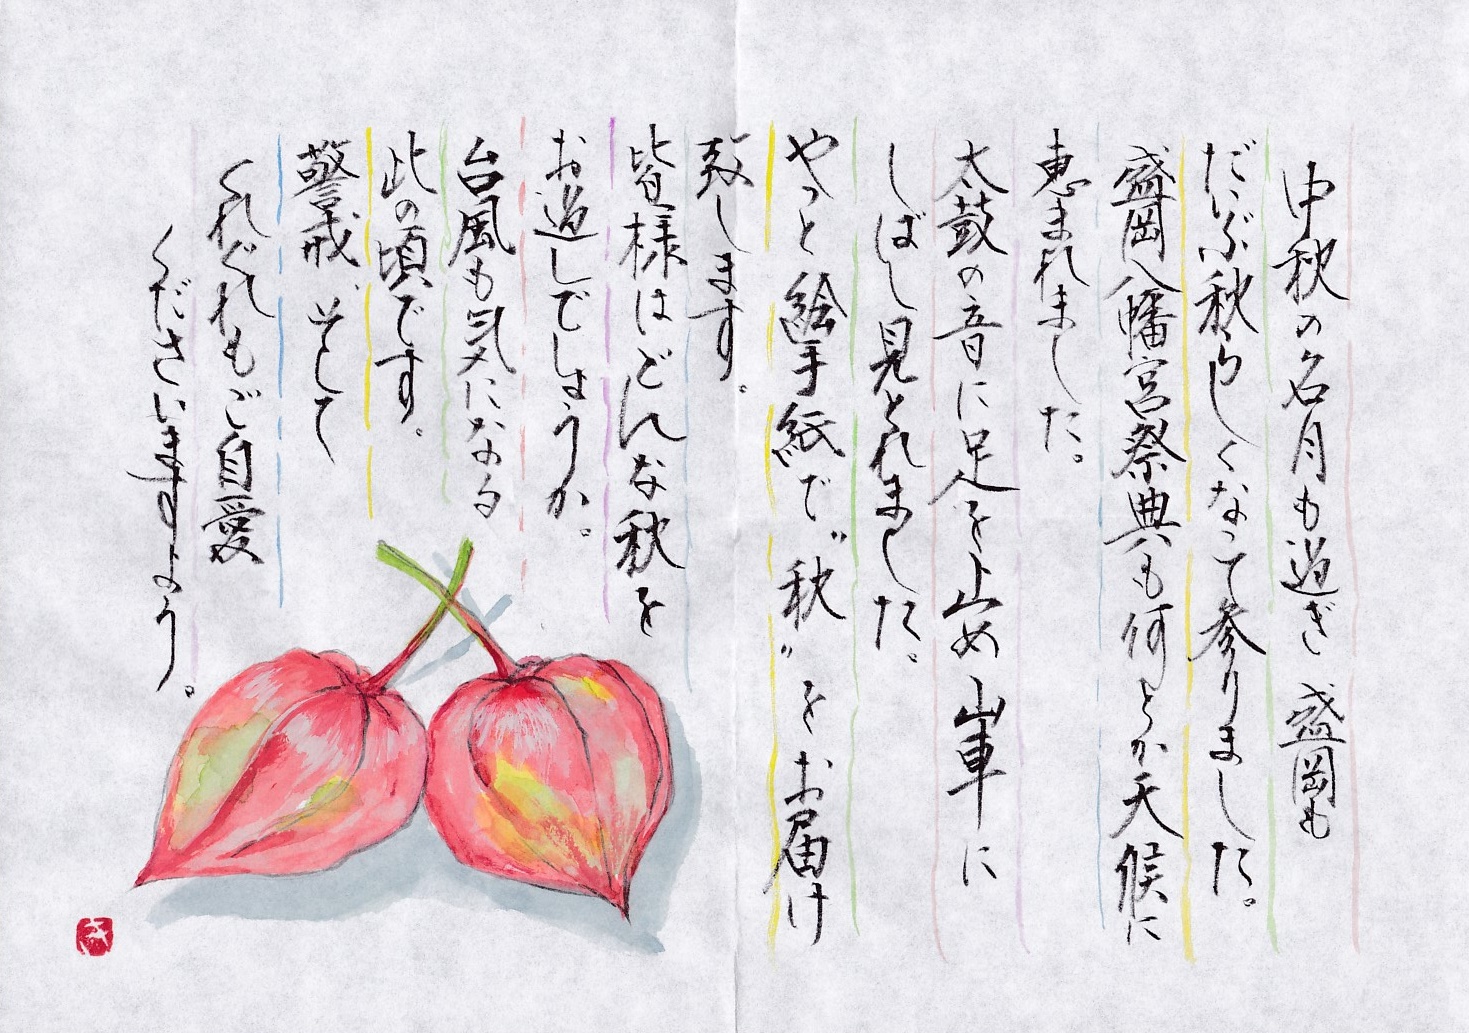 中秋の名月も過ぎ 盛岡も
だいぶ秋らしくなって参りました。
盛岡八幡宮祭典も何とか天候に
恵まれました。
太鼓の音に足を止め 山車に
しばし見とれました。
やっと絵手紙で〝秋〟をお届け
致します。
皆様はどんな秋を
お過しでしょうか。
台風も気になる
此の頃です。
警戒、そして
くれぐれもご自愛
くださいますよう。